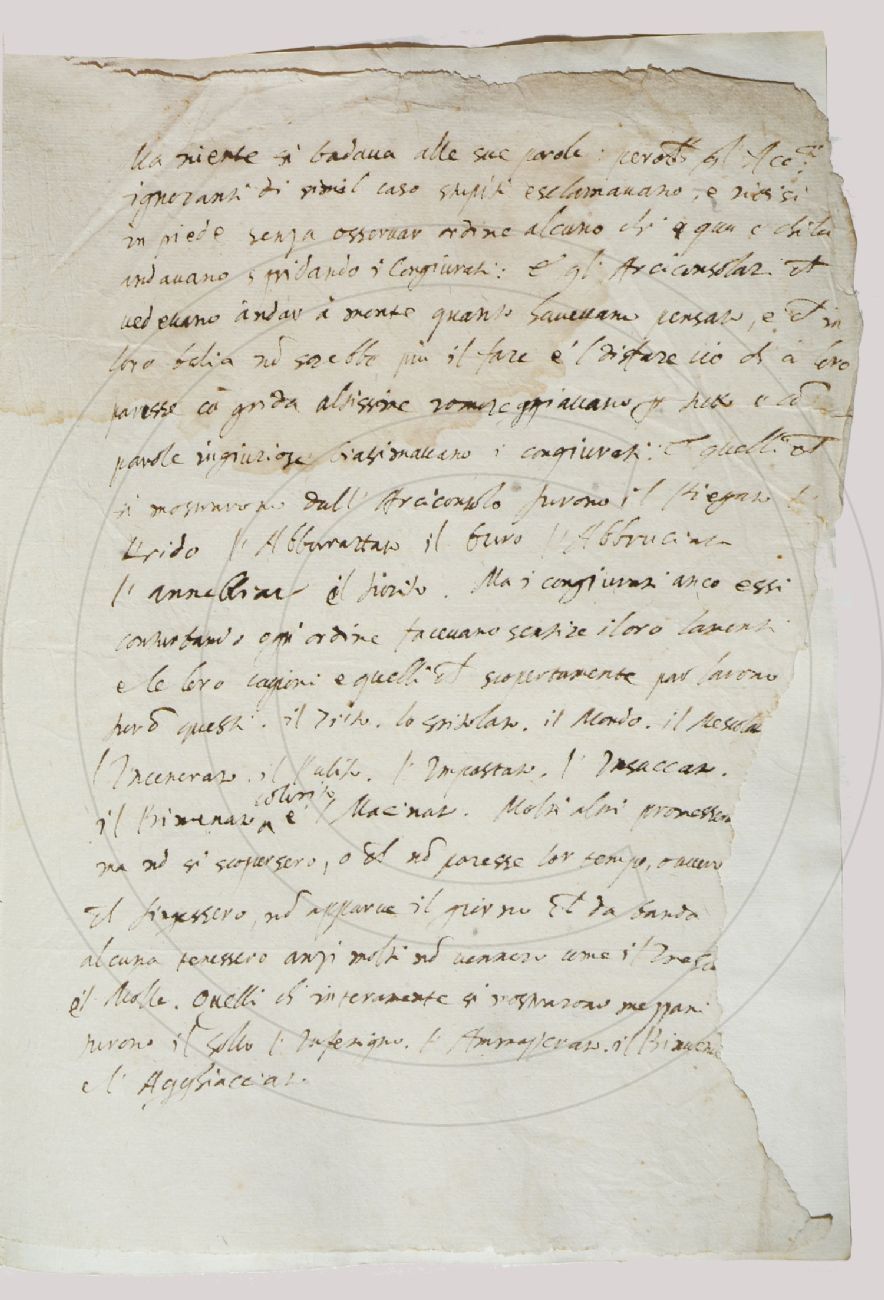 Ma niente si badava alle sue parole: però ch̃ gl'Acc.ci
ignoranti di simil caso stupiti esclamavano, e rissisi
in piede senza osservar ordine alcuno chi quà e chi là
andavano sgridando i Congiurati: E gli Arciconsolari ch̃
vedevano andar à monte quanto havevano pensato, e ch̃ in
loro balia nõ sarebbe più il fare e'l disfare ciò ch̃ à loro
paresse cõ grida altissime romoreggiavano, e cõ
parole ingiuriose biasimavano i congiurati: E quelli ch̃
si mostrarono dall'Arciconsolo furono il Riegato
Trido l'Abburattato il Furo l'Abbruciato
l' il fiorito. Ma i congiurati anco essi
conturbando ogn'ordine facevano sentire i loro lamenti
e le loro cagioni e quelli ch̃ scopertamente parlarono
furõ questi. il Trito. lo Spigolato. il Mondo. il Mescolato
l'Incenerato. il Pulito. l'Impastato. l'Insaccato.
il Rimenato colorito e 'l Macinato. Molti altri promessero
ma nõ si scopersero, o ch̃ nõ paresse lor tempo, o vero
ch̃ fingessero, nõ apparve il giorno ch̃ da banda
alcuna tenessero anzi molti nõ vennero come il
e'l Molle. Quelli ch̃ interamente si mostrarono mezzani
furono il Sollo l'Inferigno. l' il
e l'Agghiacciato.